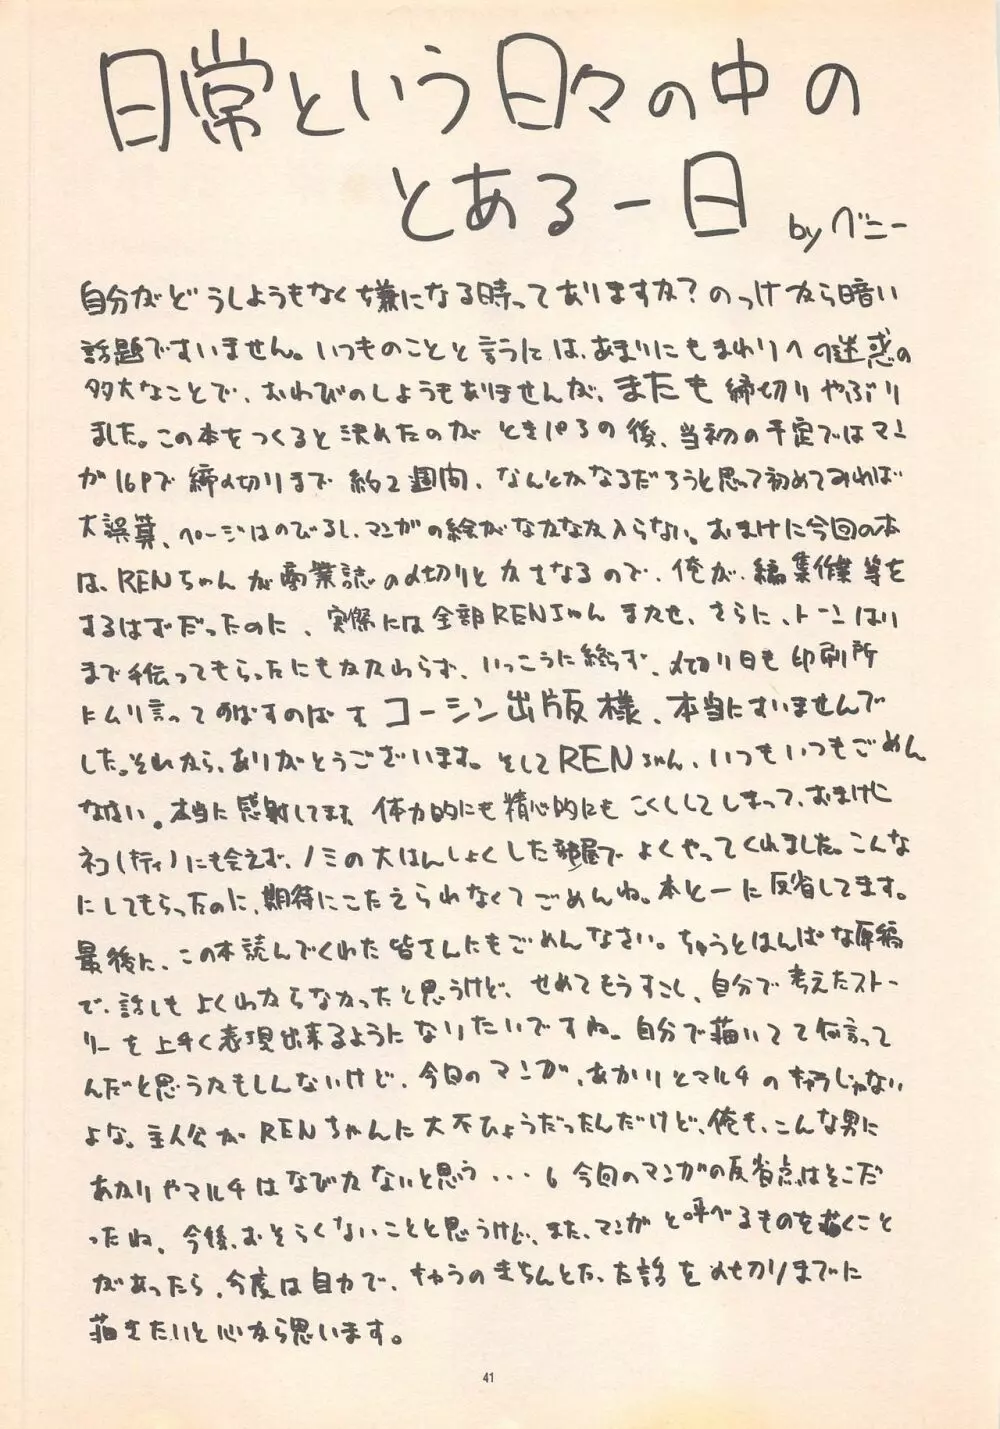 日常という日々の中の
とある一日
by ベニー
自分がどうしようもなく嫌になる時ってありますか?のっけから暗い
話題ですいません。いつものことと言うには、あまりにもまわりへの迷惑の
多大なことで、おわびのしようもありませんが、またも締切りやぶり
ました。この本をつくると決めたのがときパろの後、当初の予定ではマン
が16Pで締め切りまで約2週間、なんとかなるだろうと思って初めてみれば
大誤算、ページはのびるし、マンガの絵がなかなか入らない。おまけに今回の本
は、RENちゃんが商業誌の〆切りとかさなるので、俺が、編集作業等を
するはずだったのに、実際には全部RENちゃんまかせ、さらに、トーンはり
まで手伝ってもらったにもかかわらず、いっこうに終らず、〆切り日も印刷所
にムリ言ってのばすのばす コーシン出版様、本当にすいませんで
した。それから、ありがとうございます。そしてRENちゃん、いつもいつもごめん
なさい。本当に感射してます 体力的にも精心的にもこくししてしまって、おまけに
ネコ(ティ)にも会えず、ノミの大はんしょくした部屋でよくやってくれました。こんな
にしてもらったのに、期待にこたえられなくてごめんね。本と一に反省してます。
最後に、この本読んでくれた皆さんにもごめんなさい。ちゅうとはんぱな原稿
で、話しもよくわからなかったと思うけど、せめてもうすこし、自分で考えたストー
リーを上手く表現出来るようになりたいですね。自分で描いてて何言って
んだと思うかもしんないけど、今回のマンガ、あかりとマルチのキャラじゃない
よな。主人公がRENちゃんに大不ひょうだったんだけど、俺も、こんな男に
あかりやマルチはなびかないと思う・・・。今回のマンガの反省点はそこだ
ったね、今後、おそらくないことと思うけど、また、マンガと呼べるものを描くこと
があったら、今度は自力で、キャラのきちんとした話を〆切りまでに
描きたいと心から思います。
41